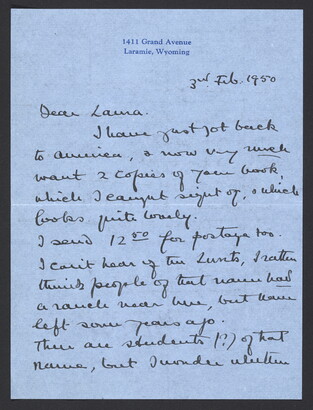 1411 Grand Avenue
Laramie, Wyoming
3rd Feb. 1950
Dear Laura.
I have just got back
to America, & now very much
want 2 copies of your book,
which I caught sight of, & which
looks quite lovely.
I send 12 00 for postage too.
I can't hear of the Lunts, I rather
think people of that name had
a ranch near here, but have
left some years ago.
There are students (?) of that
name, but I wonder whether